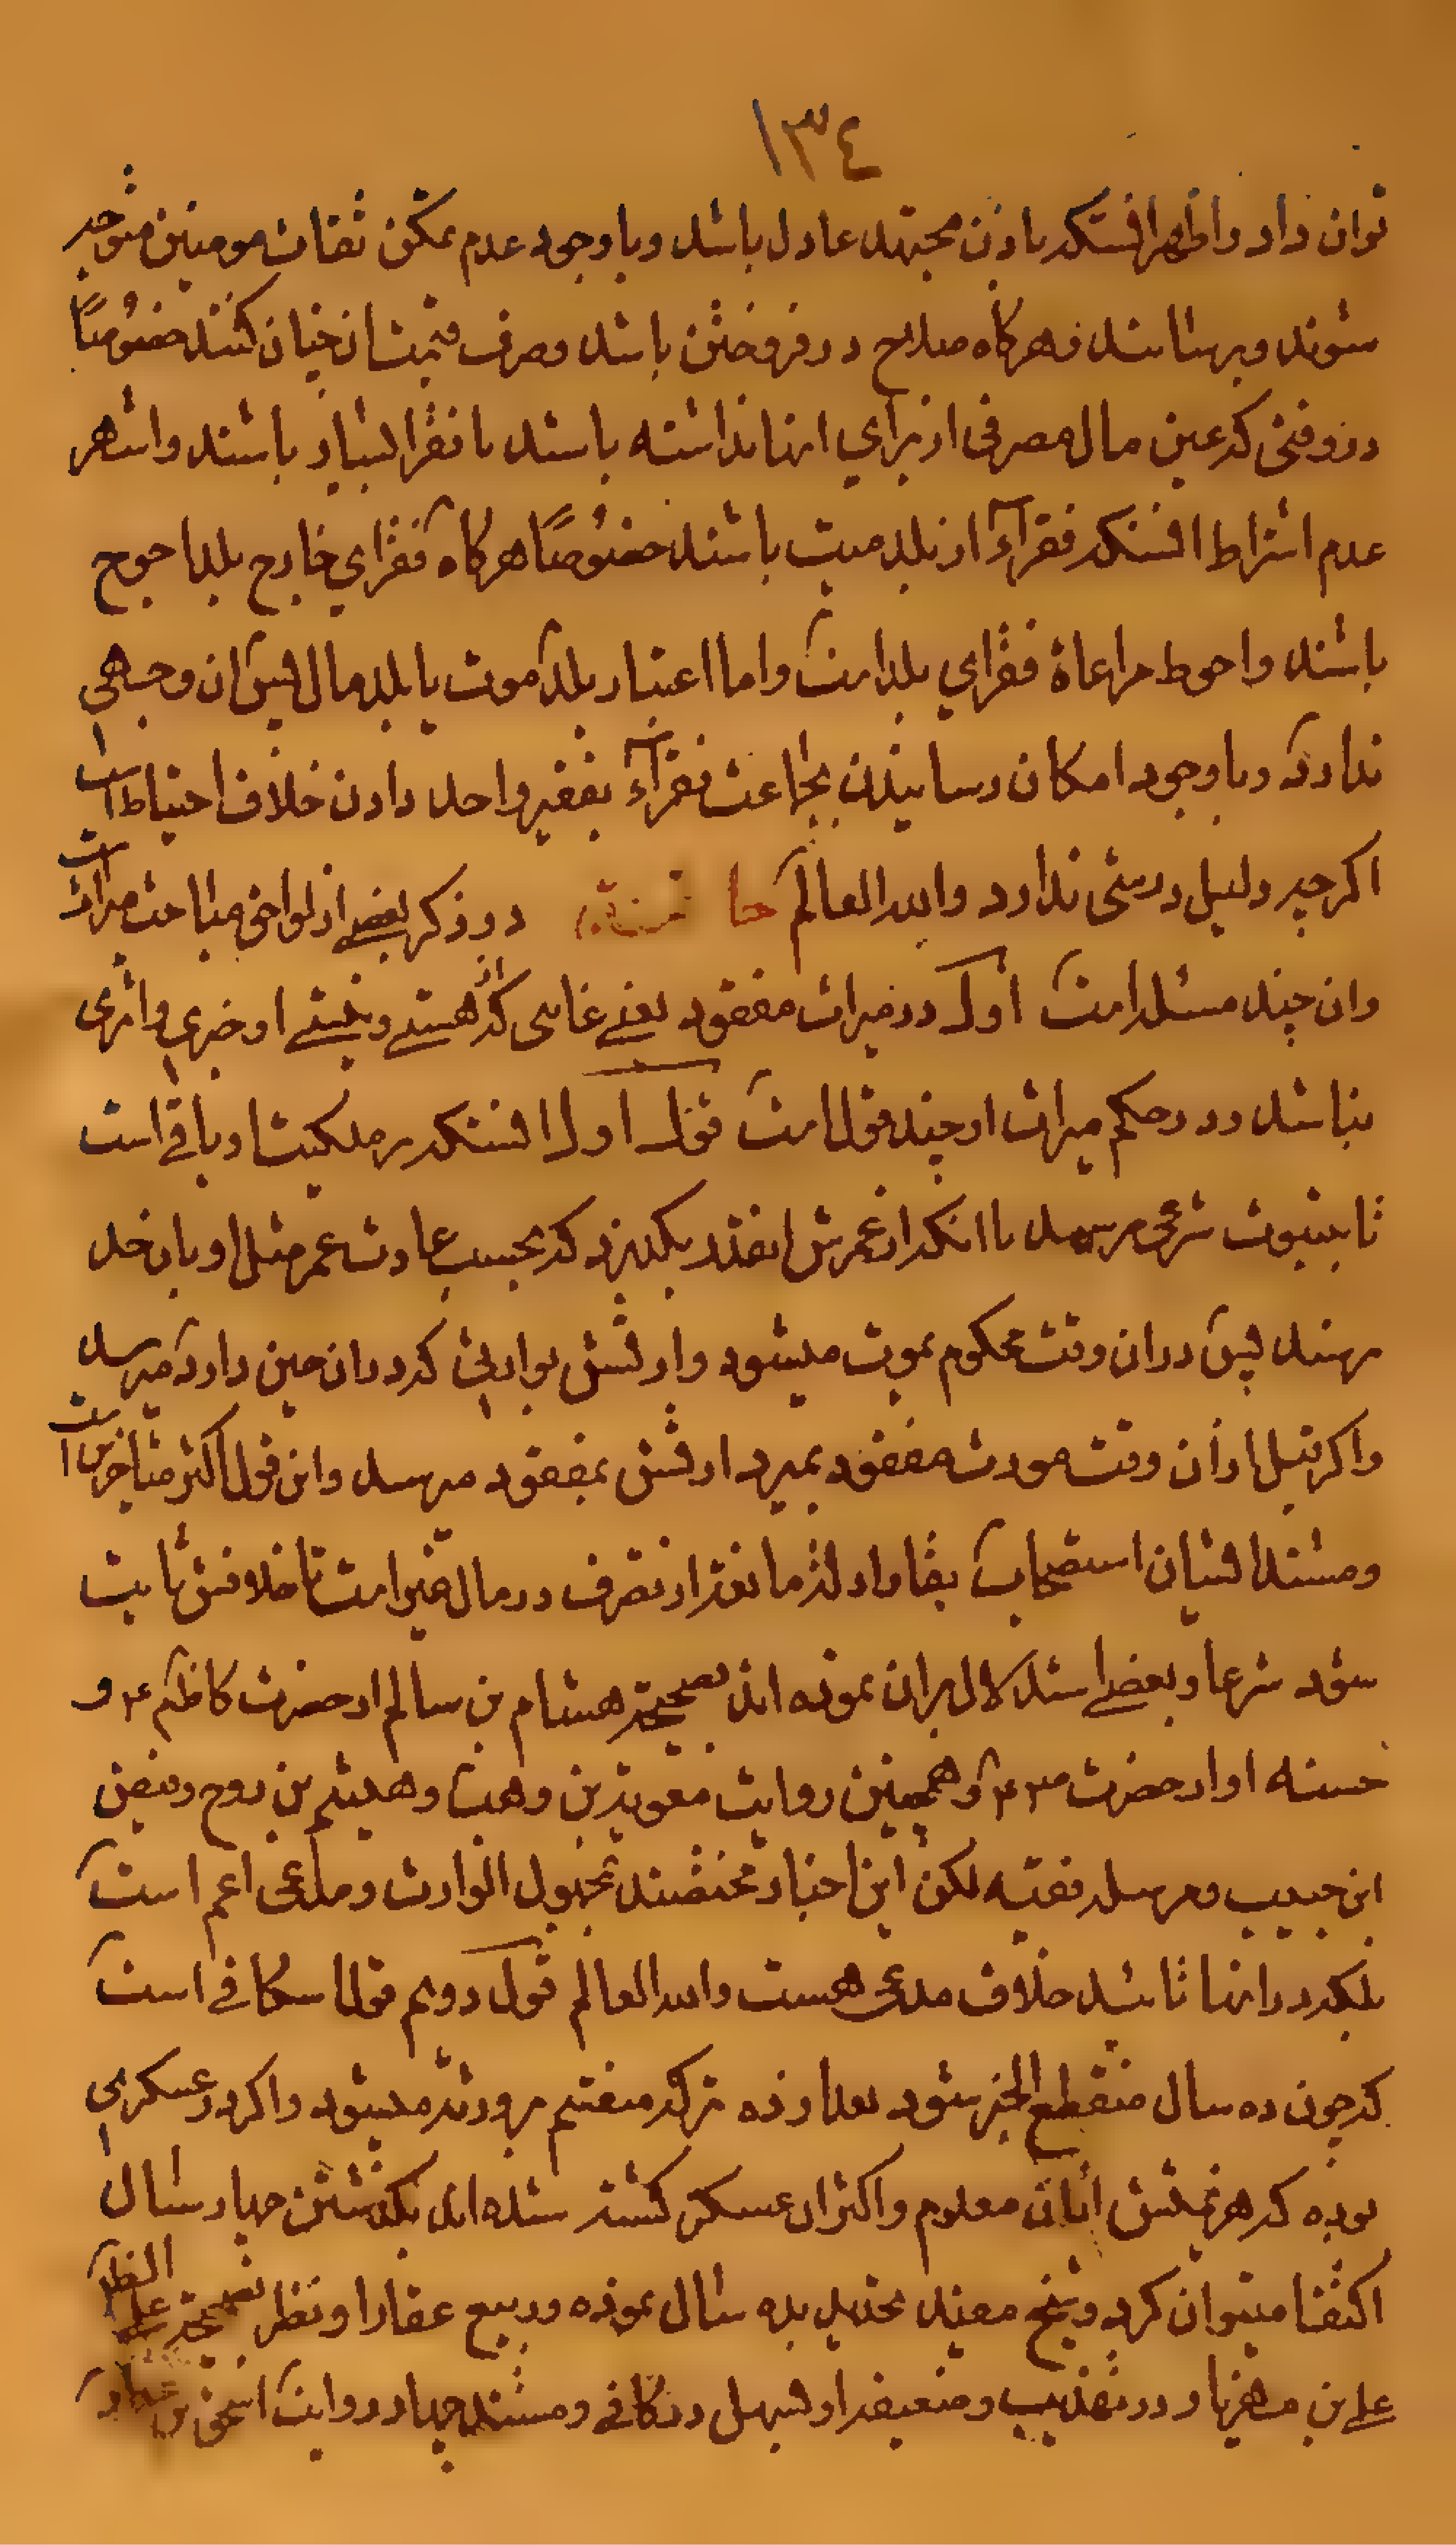 ١٣٤
توان داد و اظهر آنستکه باذن مجتهد عادل باشد و با وجود عدم تمکن ثقات مومنین متوجه
شوند و برسانند و هرکاه صلاح در فروختن باشد و صرف قیمت انرا چنان کنند خصوصًا
در وقتی که عین مال مصرفی از برای انها نداشته باشد یا فقرا بسیار باشند و اشهر
عدم اشتراط انستکه فقرآء از بلد میت باشند خصوصًا هرکاه فقرای خارج بلد احوج
باشند و احوط مراعاة فقرای بلد است و اما اعتبار بلد موت یا بلد مال پس ان وجهی
ندارد و با وجود امکان رسانیدن بجماعت فقرآء بفقیر واحد دادن خلاف احتیاط است
اکرچه دلیل درستی ندارد والله العالم خاتمة در ذکر بعضی از لواحق مباحث میراث است
وان چند مسئله است اول در میراث مفقود یعنی غایبی که از هستی و نیستی او خبری و اثری
نباشد و در حکم میراث او چند قول است قول اول انستکه بر ملکیت او باقی است
تا بثبوت شرعی برسد یا انکه از عمرش انقدر بکذرد که بحسب عادت عمر مثل او بان حد
نرسد پس در ان وقت محکوم بموت میشود و ارثش بوارثی که در ان حین دارد میرسد
و اکر قبل از ان وقت مورث مفقود بمیرد ارثش بمفقود میرسد و این قول اکثر متاخرین است
و مستند ایشان استصحاب بقا و ادله مانعه از تصرف در مال غیر است تا خلافش ثابت
شود شرعا و بعضی استدلال بران نموده اند بصحیحه هشام بن سالم از حضرت کاظم ع و
حسنه او از حضرت ص ع و همچنین روایت معویة بن وهب و هیثم بن روح و نصر بن
ابن حبیب و مرسله فقیه لکن این اخبار مختصند بمجهول الوارث و مدعی اعم است
بلکه در انها تائید خلاف مدعی هست والله العالم قول دویم قول اسکافی است
که چون ده سال منقطع الخبر شود بعد از ده ترکه منقسم بر ورثه میشود و اکر در عسکری
بوده که هزیمتش انان معلوم و اکثر ان عسکر کشته شده اند بکذشتن چهار سال
اکتفا میتوان کرد و شیخ مفید تحدید بده سال نموده در بیع عقار او بنظر بصحیحه
علی بن مهزیار در تهذیب و ضعیفه او لسهل در کافی و مستند چهار روایت اسحق بن عمار